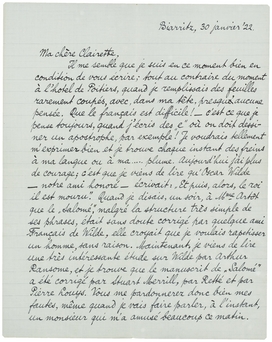 Biarritz, 30 janvier '22
Ma chère Clairette,
Il me semble que je suis en ce moment bien en
condition de vous écrire; tout au contraire du moment
à l'hôtel de Poitiers, quand je remplissais des feuilles
rarement coupés, avec, dans ma tête, presqu'aucune
pensée. Que le français est difficile! - c'est ce que je
pense toujours, quand j'écris des c' où on doit desti-
ner un apostrophe, par exemple! Je voudrais tellement
m'exprimer bien, et je trouve chaque instant des freins
à ma langue ou à ma .... plume. Aujourd'hui j'ai plus
de courage; c'est que je viens de lire qu'Oscar Wilde
_ notre ami honoré _ écrivait: "Et puis, alors, le roi
il est mouru." Quand je disais, un soir, à Mme Artôt
que le "Salomé", malgré la structure très simple de
ses phrases, était sans doute corrigé par quelque ami
Français de Wilde, elle croyait que je voulais rapetisser
un homme, sans raison. Maintenant, je viens de lire
une très intéressante étude sur Wilde par Arthur
Ransome, et je trouve que le manuscrit de "Salomé"
a été corrigé par Stuart Merrill, par Retté et par
Pierre Louÿs. Vous me pardonnerez donc bien mes
fautes, même quand je vais faire parler, à l'instant,
un monsieur qui m'a amusé beaucoup ce matin.